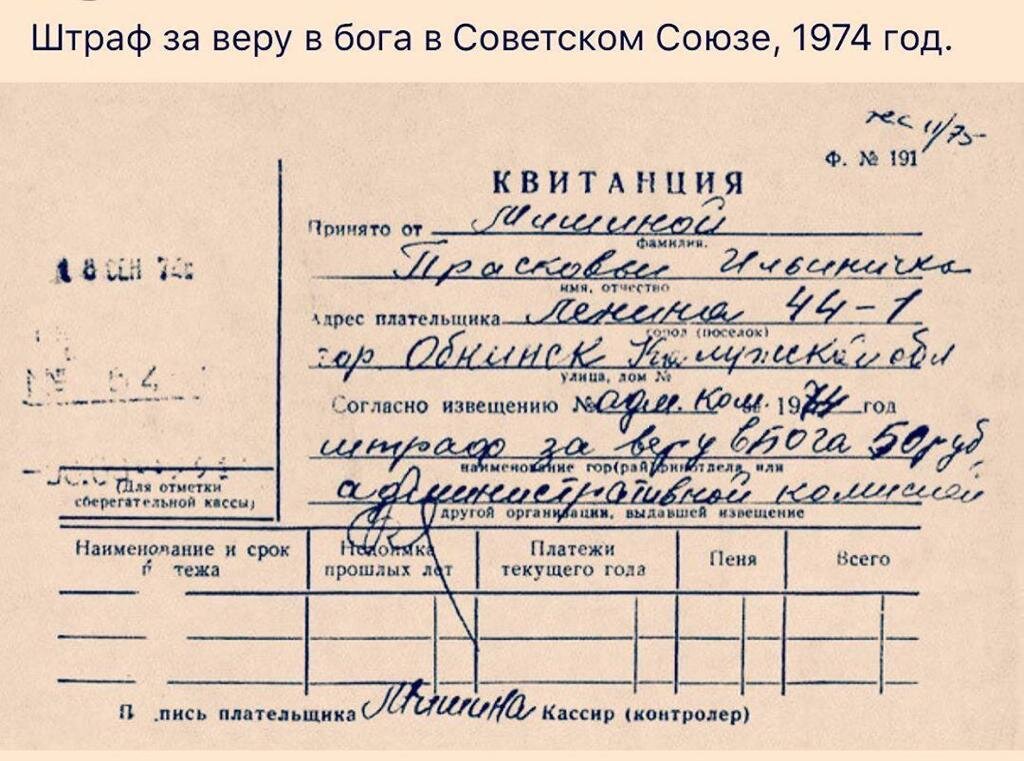 Штраф за веру в бога в Советском Союзе, 1974 год.
11/75
Ф. № 191
КВИТАНЦИЯ
Принято от Мишиной
фамилия.
Прасковьи Ильинична
имя, отчество
Адрес плательщика Ленина 44-1
город (поселок)
гор Обнинск Калужской обл
улица, дом №
Согласно извещению № адм. ком. 1974 год
штраф за веру в Бога 50 руб
наименование гор(рай)финотдела или
административной комиссией
другой организации, выдавшей извещение
18 СЕН 74
(Для отметки
сберегательной кассы)
Наименование и срок
п тежа
Недоимка
прошлых лет
Платежи
текущего года
Пеня
Всего
П .пись плательщика Мишина Кассир (контролер)